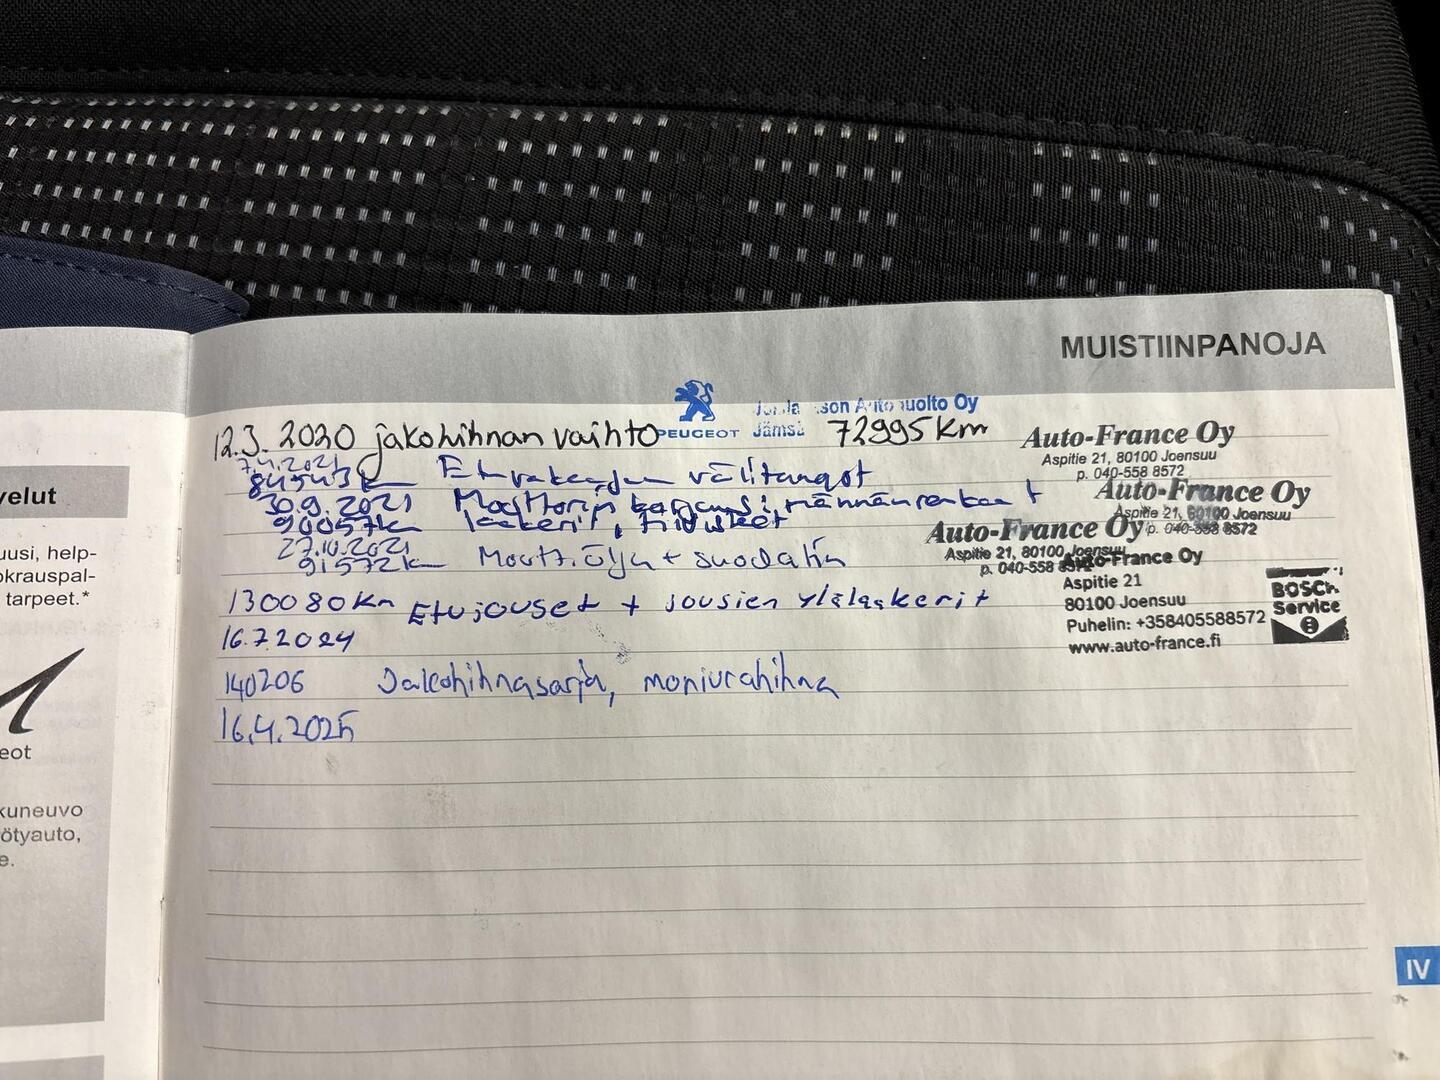 MUISTIINPANOJA
son Autohuolto Oy
PEUGEOT Jämsä
12.3.2020 jakohihnan vaihto 72995 Km
Auto-France Oy
Aspitie 21, 80100 Joensuu
p. 040-558 8572
7.4.2021
84543k Etuvakaajan välitangot
Auto-France Oy
Aspitie 21, 80100 Joensuu
p. 040-558 8572
30.9.2021 Moottorin männänrenkaat
90057km laakerit, tiivisteet
Auto-France Oy
Aspitie 21, 80100 Joensuu
p. 040-558 8572
27.10.2021
91572k Moott.öljy + suodatin
Auto-France Oy
Aspitie 21
80100 Joensuu
Puhelin: +358405588572
www.auto-france.fi
BOSCH
Service
130080Km Etujouset + jousien ylälaakerit
16.7.2024
140206 Jakohihnasarja, moniurahihna
16.4.2025
IV
velut
uusi, help-
okrauspal-
tarpeet.*
eot
kuneuvo
ötyauto,
e.